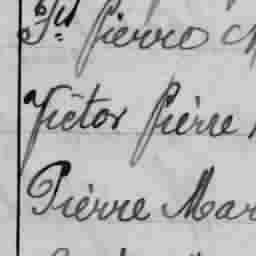 Pierre
Victor Pierre
Pierre Mar